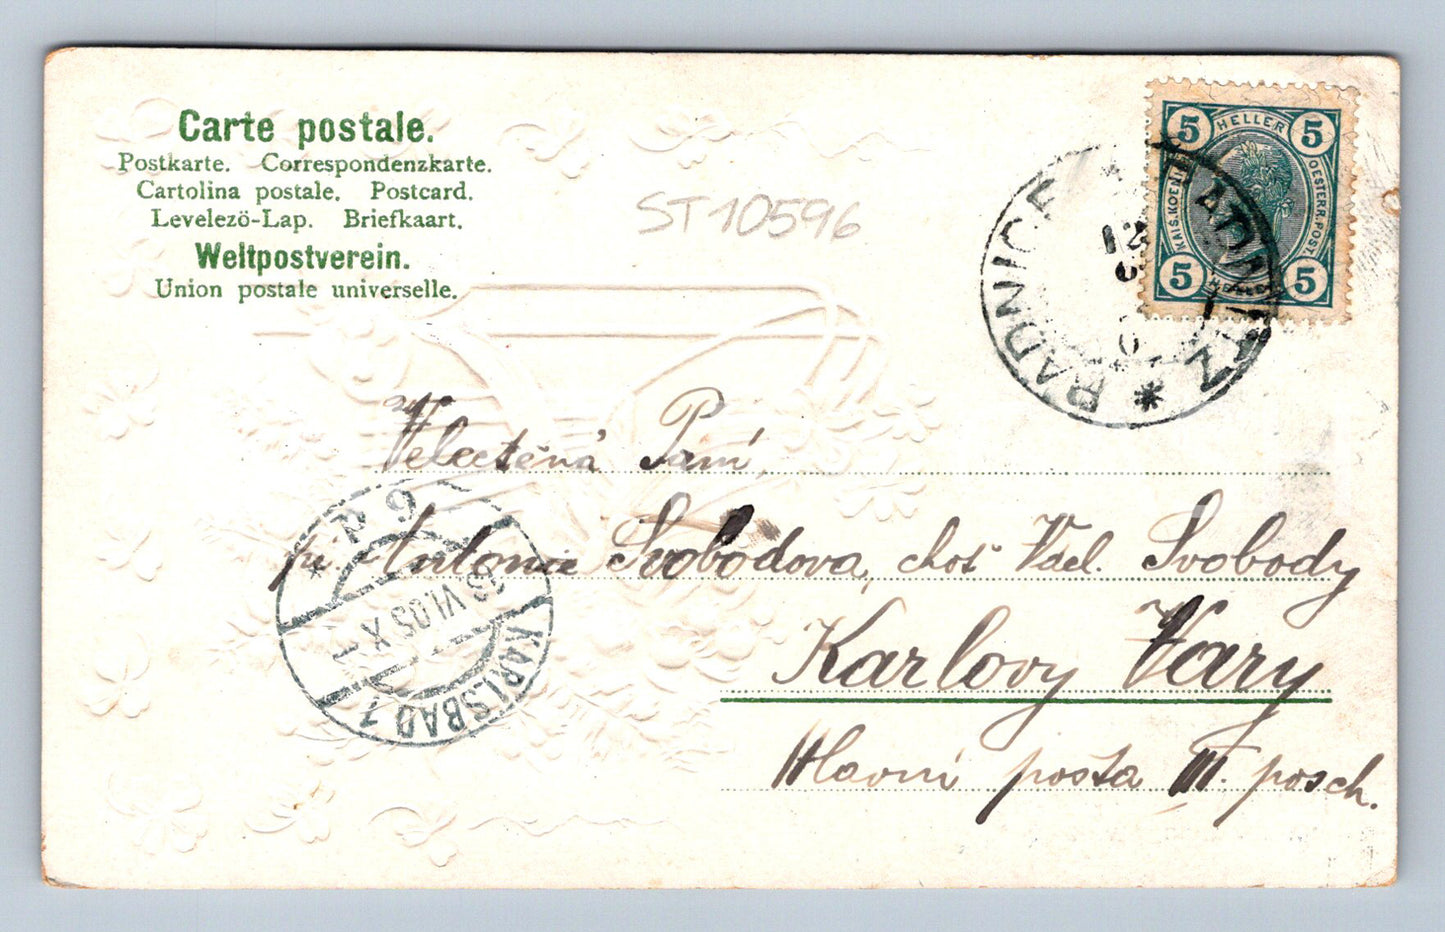 Carte postale.
Postkarte. Correspondenzkarte.
Cartolina postale. Postcard.
Levelező-Lap. Briefkaart.
Weltpostverein.
Union postale universelle.
ST10596
5 HELLER 5
KAIS. KOENIGL. OESTERR. POST.
5 HELLER 5
RADNICE * RADNITZ *
12
Velectěná Paní
pí. Antonie Svobodova, choť Václ. Svobody
Karlovy Vary
Hlavní pošta III. posch.
P 9
13 VI.05 X
KARLSBAD 1